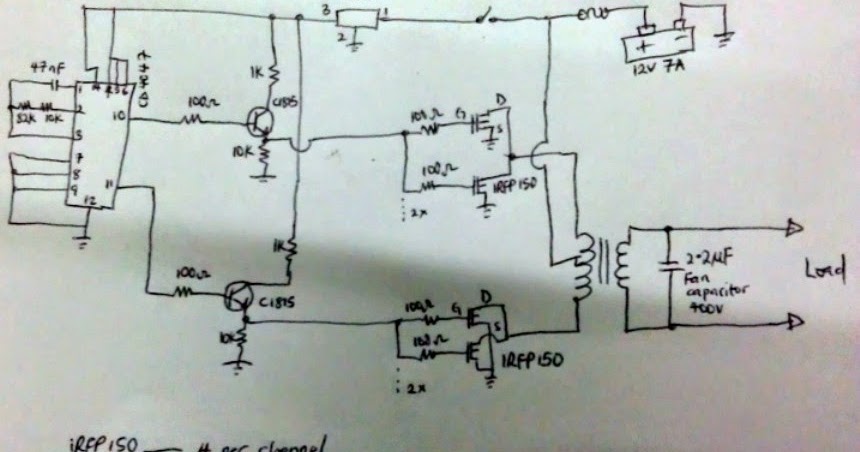 3
1
2
12V 7A
47nF
CD4047
4
5
6
1
2
3
82K 10K
7
8
9
10
11
12
1K
100Ω
C1815
10K
100Ω
G
D
S
100Ω
IRFP150
2x
1K
100Ω
C1815
10K
100Ω
G
D
S
100Ω
IRFP150
2x
2.2μF
Fan
capacitor
400V
Load
iRFP150 per channel